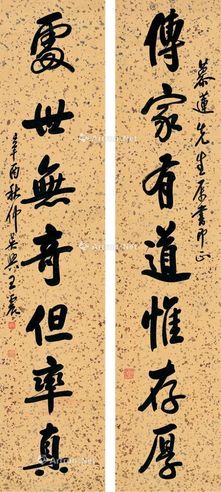 慕蓮先生屬書即正
傳家有道惟存厚
處世無奇但率真
辛酉秋仲吳興王震